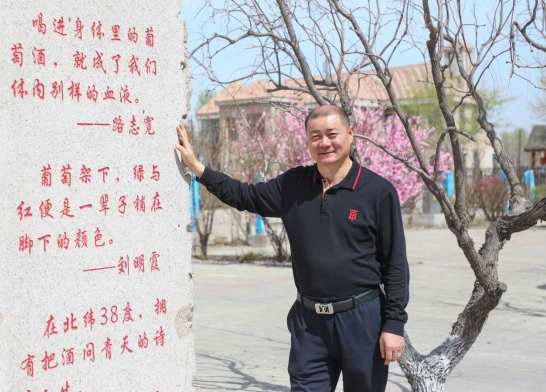 喝进身体里的葡
萄酒，就成了我们
体内别样的血液。
——路志宽
葡萄架下，绿与
红便是一辈子稍在
脚下的颜色。
——刘明霞
在北纬38度，拥
有把酒问青天的诗